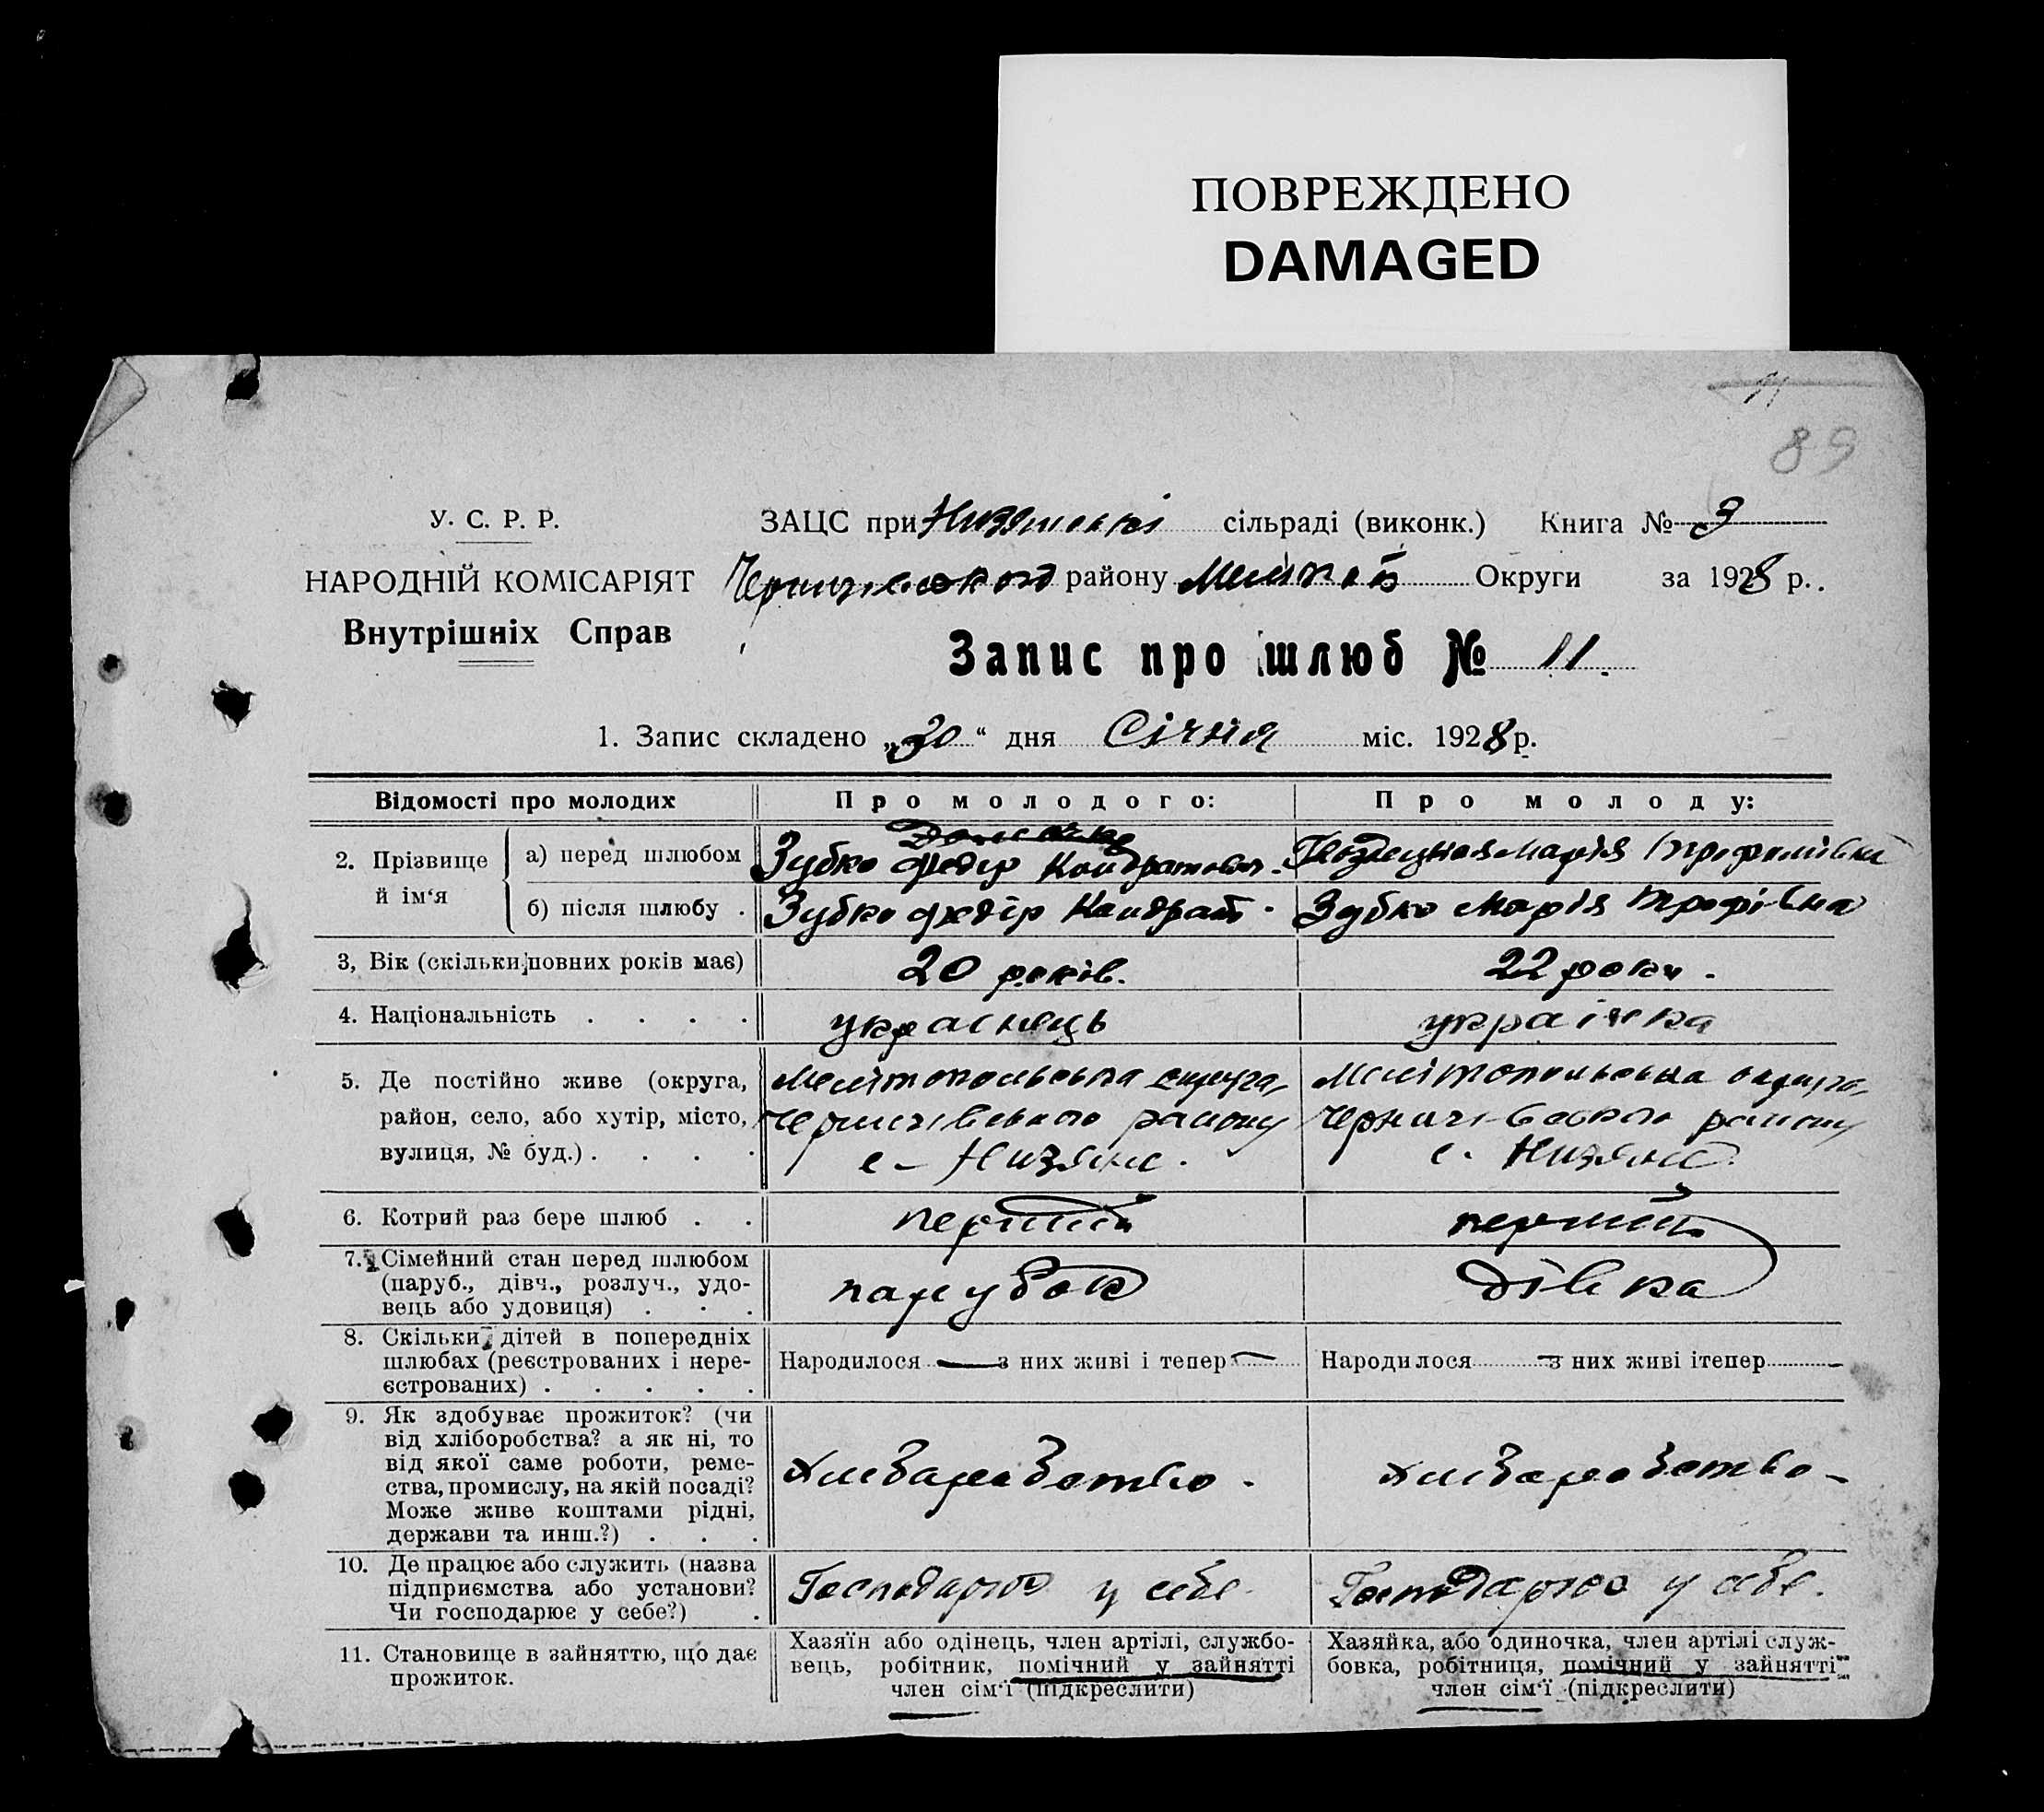 ПОВРЕЖДЕНО
DAMAGED
11
89
У. С. Р. Р.
НАРОДНІЙ КОМІСАРІЯТ
Внутрішніх Справ
ЗАЦС при сільраді (виконк.) Книга № 3
району Меліто Округи за 1928 р.
Запис про шлюб № 11.
1. Запис складено „30“ дня Січня міс. 1928 р.
Відомості про молодих
Про молодого:
Про молоду:
2. Прізвище й ім‘я
а) перед шлюбом
Зубко Федір Кондратович
Марія Трофимівна
б) після шлюбу .
Зубко Федір Кондрат
Зубко Марія Трофівна
3, Вік (скільки повних років має)
20 років.
22 роки.
4. Національність . . . .
українець
українка
5. Де постійно живе (округа,
район, село, або хутір, місто,
вулиця, № буд.) . . . .
Мелітопольська округа,
Чернигівського району
с - Низяни.
Мелітопольська округа,
Чернигівського району
с. Низяни.
6. Котрий раз бере шлюб . .
перший
перший
7. Сімейний стан перед шлюбом
(паруб., дівч., розлуч., удо-
вець або удовиця) . . .
парубок
дівка
8. Скільки дітей в попередніх
шлюбах (реєстрованих і нере-
єстрованих) . . . . .
Народилося — з них живі і тепер —
Народилося — з них живі ітепер —
9. Як здобуває прожиток? (чи
від хліборобства? а як ні, то
від якої саме роботи, реме-
ства, промислу, на якій посаді?
Може живе коштами рідні,
держави та инш.?) . . .
хлібаробство.
хлібаробство-
10. Де працює або служить (назва
підприємства або установи?
Чи господарює у себе?) .
Господарює у себе.
Господарює у себе.
11. Становище в зайняттю, що дає
прожиток.
Хазяїн або одінець, член артілі, службо-
вець, робітник, помічний у зайнятті
член сім‘ї (підкреслити)
Хазяйка, або одиночка, член артілі служ-
бовка, робітниця, помічний у зайнятті
член сім‘ї (підкреслити)